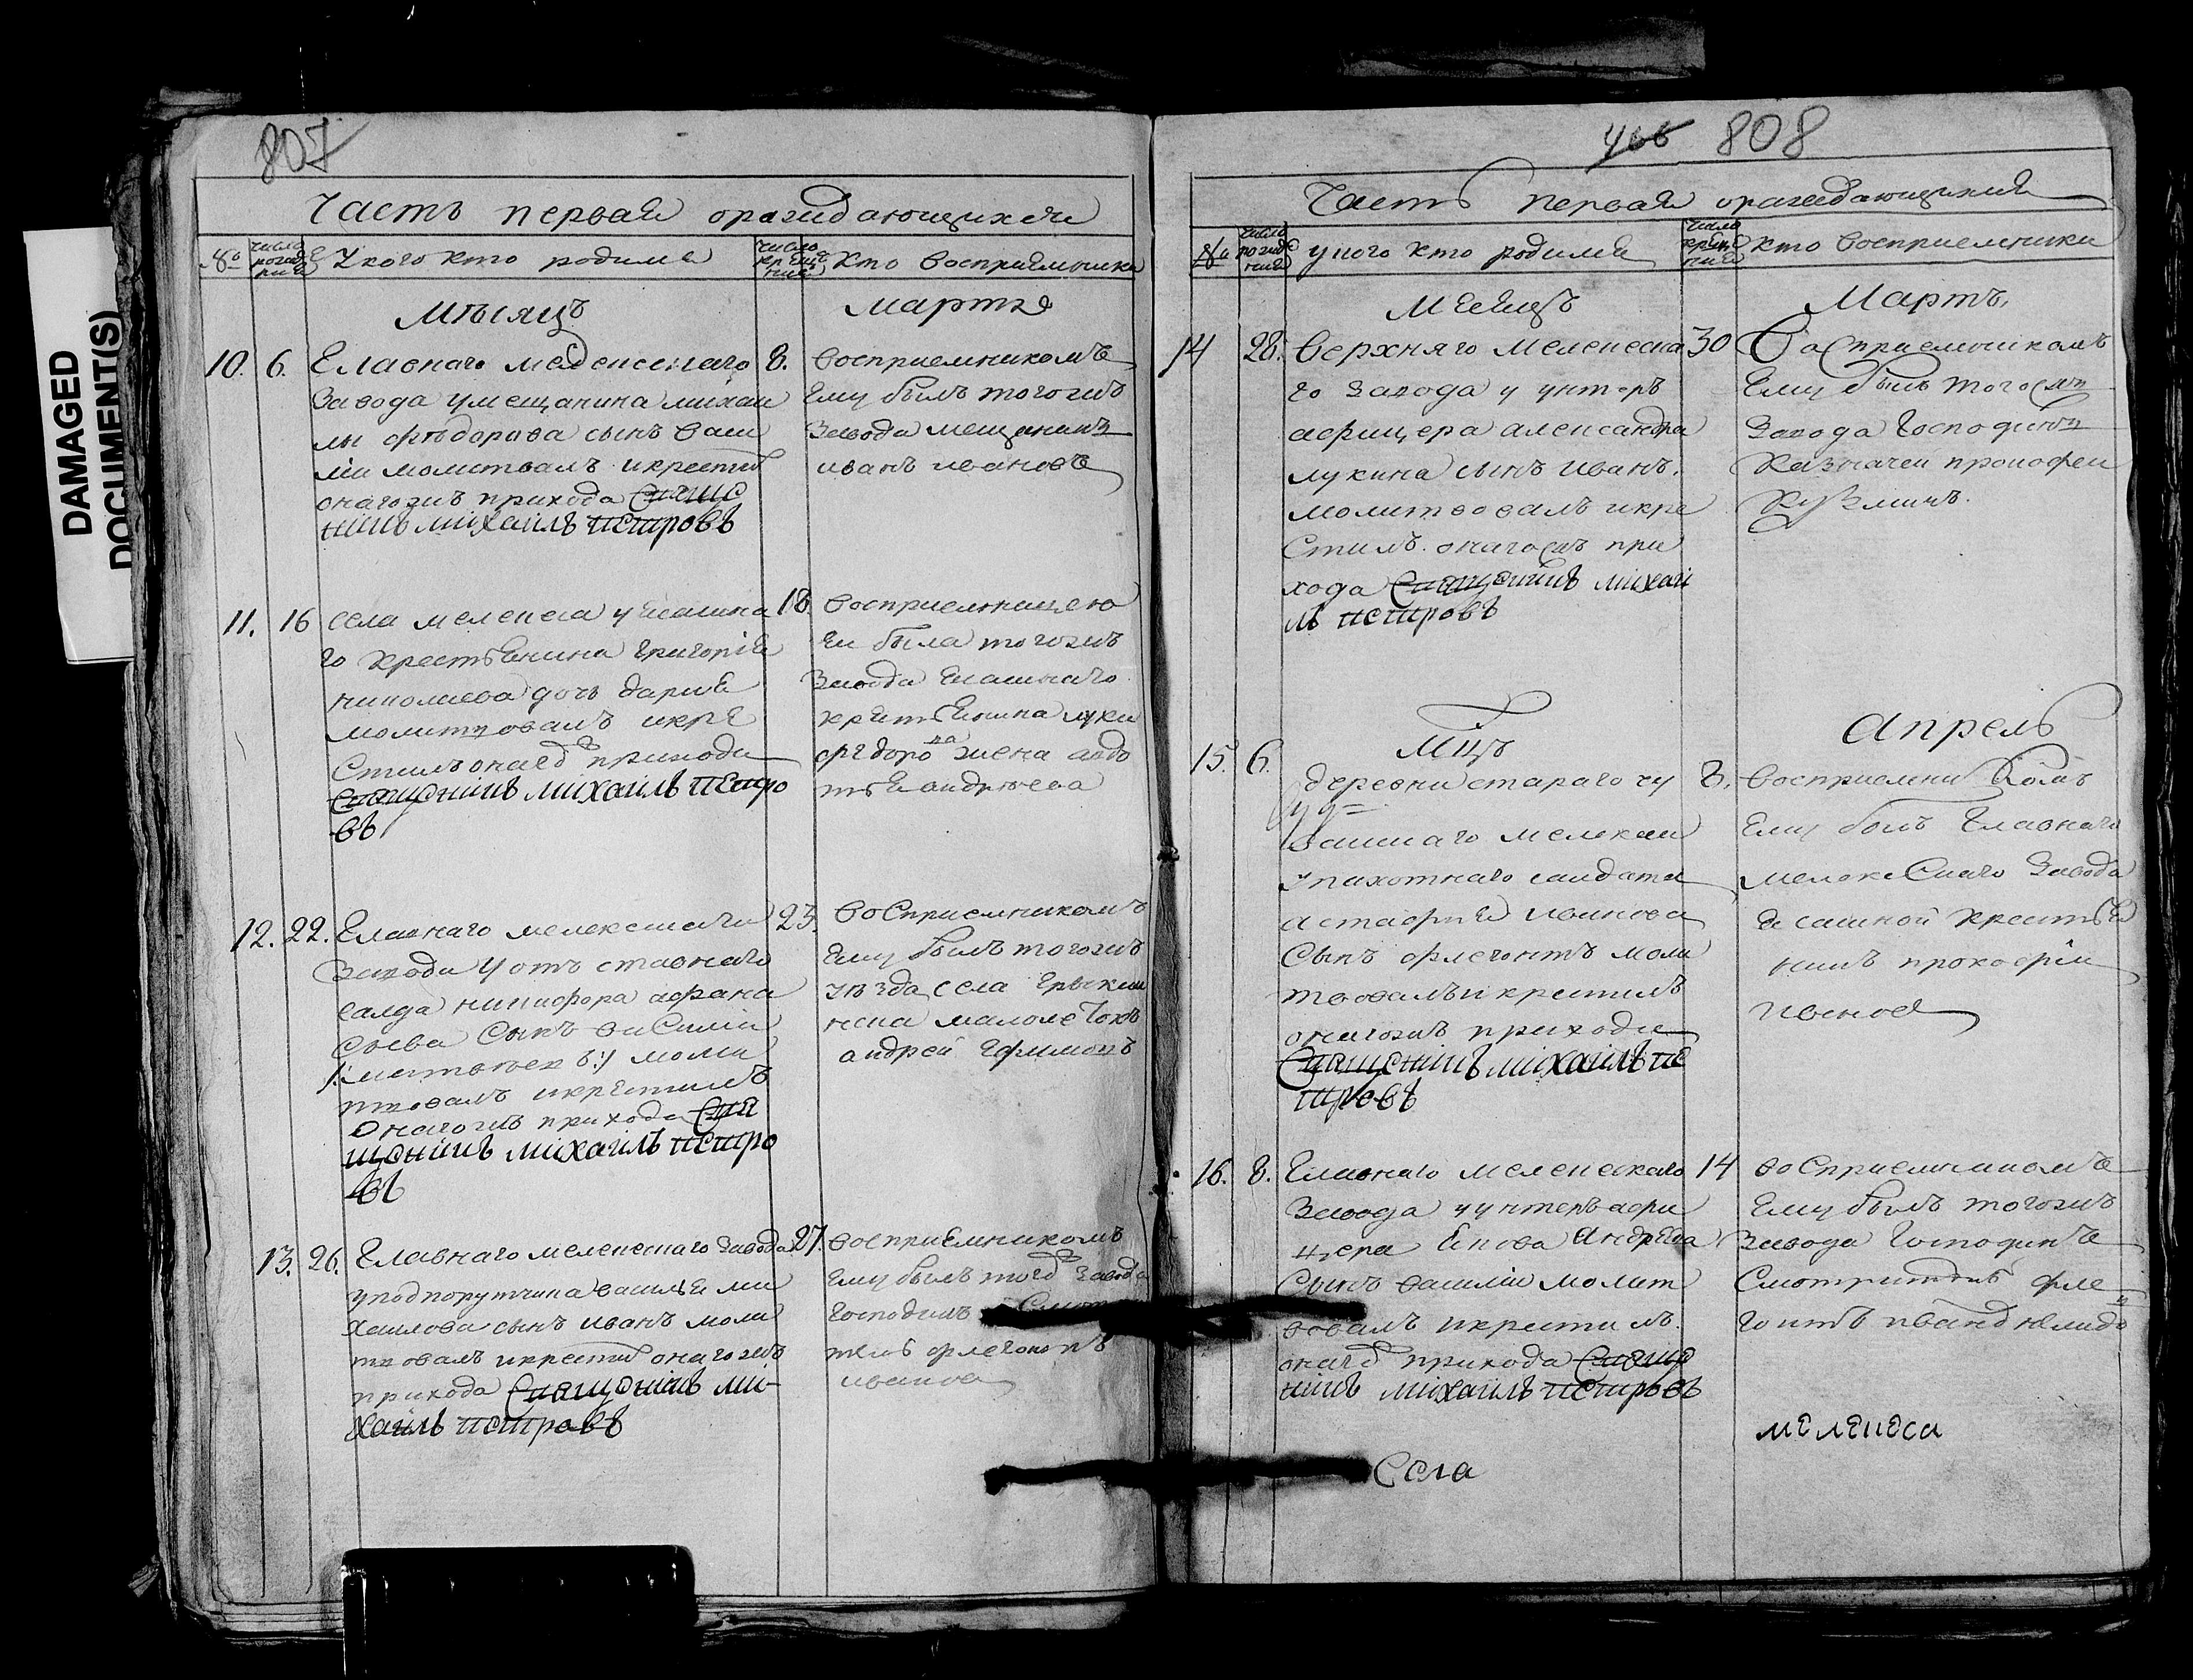 DAMAGED
DOCUMENT(S)
807
Часть первая ораждающихся
№ число рожде ния У кого кто родился число креще ния кто восприемники
Мѣсяцъ мартъ
10. 6. Главнаго мелекескаго 8.
завода умещанина михаи
лы фѣдорова сынъ васи
ли молитвалъ икрестил
онагожъ прихода Свяще
нникъ михаилъ петровъ
восприемникомъ
ему былъ тогожъ
завода мещанинъ
иванъ ивановъ
11. 16 села мелекеса уясашна 18.
го крестьянина григорія
николаева дочь дария
молитвовалъ икре
стилъ онаго прихода
Священникъ михаилъ петро
въ
восприемницею
ей была тогожъ
завода ясашнаго
крестьянина луки
федорова жена авдо
тья андреева
12. 22. Главнаго мелекескаго 23.
завода уотъ ставнаго
салда никифора афана
сьева сынъ василии
моли
твовалъ икрестилъ
онагожъ прихода Свя
щенникъ михаилъ петро
въ
восприемникомъ
ему былъ тогожъ
уѣзда села ерыкли
нска малолетокъ
андрей ефимовъ
13. 26. Главнаго мелекескаго завода 27.
уподпорутчика василья ми
хаилова сынъ иванъ моли
твовалъ икрестил онагожъ
прихода Священникъ ми-
хаилъ петровъ
восприемникомъ
ему былъ того завода
господинъ Смотри
тель флегонтъ
иванов
466 808
Часть первая ораждающихся
№ число рожде ния у кого кто родился число креще ния кто восприемники
Месяцъ Мартъ.
14 28. Верхняго мелекеска 30
го завода у унтеръ
афицера александра
лукина сынъ иванъ.
молитвовалъ икре
стилъ. онагожъ при
хода Священникъ михаи
лъ петровъ
Восприемникомъ
ему былъ тогожъ
завода господинъ
Казначеи прокофеи
Кузминъ.
Мцъ Апрель
15. 6. деревни стараго чу 8.
вашскаго мелекеса
упахотнаго салдата
астафия иванова
сынъ флегонтъ моли
твовалъ икрестилъ
онагожъ прихода
Священникъ михаилъ пе
тровъ
восприемникомъ
ему былъ Главнаго
мелекескаго завода
ясашной крестья
нинъ прокофіи
иванов
16. 8. Главнаго мелекескаго 14
завода уунтеръ афи
цера якова андреева
сынъ василіи молит
вовалъ икрестилъ.
онаго прихода Священ
никъ михаилъ петровъ
восприемникомъ
ему былъ тогожъ
завода господинъ
Смотритель фле
гонтъ
Села мелекеса